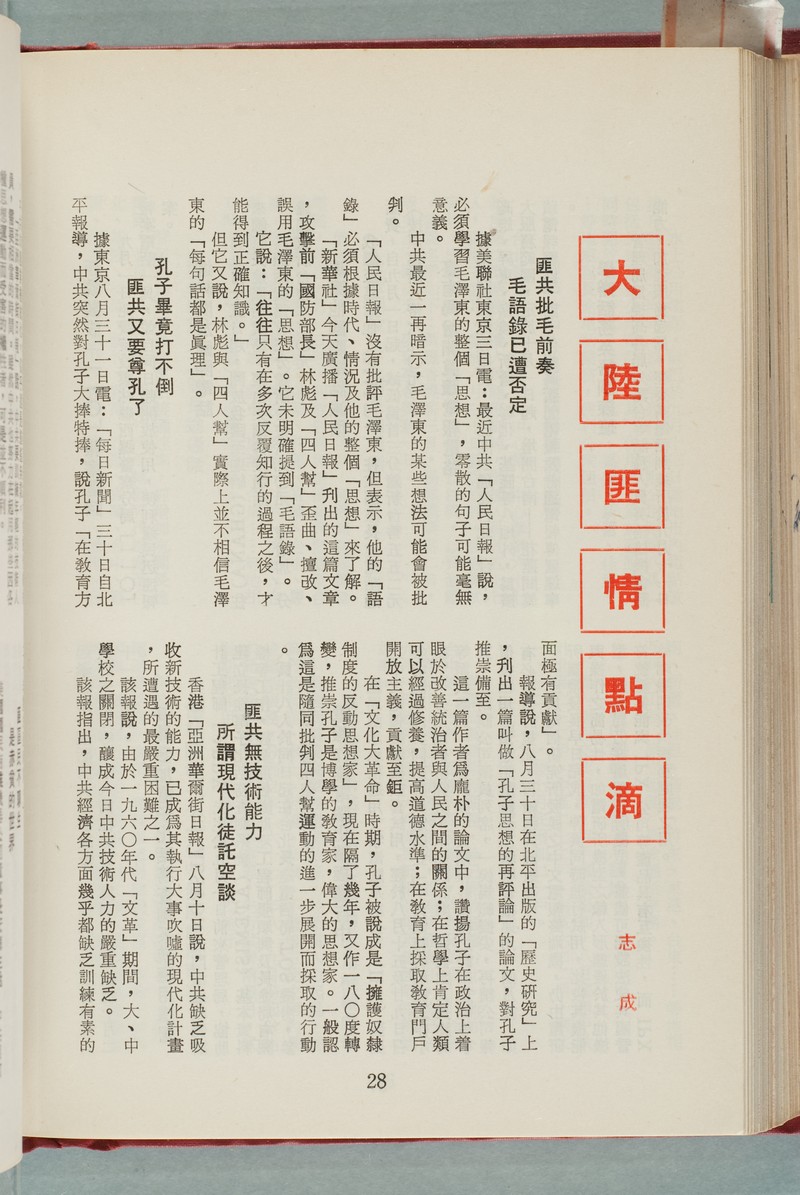 大陸匪情點滴
志成
匪共批毛前奏
毛語錄已遭否定
據美聯社東京三日電：最近中共「人民日報」說，
必須學習毛澤東的整個「思想」，零散的句子可能毫無
意義。
中共最近一再暗示，毛澤東的某些想法可能會被批
判。
「人民日報」沒有批評毛澤東，但表示，他的「語
錄」必須根據時代、情況及他的整個「思想」來了解。
「新華社」今天廣播「人民日報」刋出的這篇文章
，攻擊前「國防部長」林彪及「四人幫」歪曲、擅改、
誤用毛澤東的「思想」。它未明確提到「毛語錄」。
它說：「往往只有在多次反覆知行的過程之後，才
能得到正確知識。」
但它又說，林彪與「四人幫」實際上並不相信毛澤
東的「每句話都是眞理」。
孔子畢竟打不倒
匪共又要尊孔了
據東京八月三十一日電：「每日新聞」三十日自北
平報導，中共突然對孔子大捧特捧，說孔子「在教育方
面極有貢獻」。
報導說，八月三十日在北平出版的「歷史研究」上
，刋出一篇叫做「孔子思想的再評論」的論文，對孔子
推崇備至。
這一篇作者爲龐朴的論文中，讚揚孔子在政治上着
眼於改善統治者與人民之間的關係；在哲學上肯定人類
可以經過修養，提高道德水準；在教育上採取教育門戶
開放主義，貢獻至鉅。
在「文化大革命」時期，孔子被說成是「擁護奴隸
制度的反動思想家」，現在隔了幾年，又作一八〇度轉
變，推崇孔子是博學的教育家，偉大的思想家。一般認
爲這是隨同批判四人幫運動的進一步展開而採取的行動
。
匪共無技術能力
所謂現代化徒託空談
香港「亞洲華爾街日報」八月十日說，中共缺乏吸
收新技術的能力，已成爲其執行大事吹噓的現代化計畫
，所遭遇的最嚴重困難之一。
該報說，由於一九六〇年代「文革」期間，大、中
學校之關閉，釀成今日中共技術人力的嚴重缺乏。
該報指出，中共經濟各方面幾乎都缺乏訓練有素的
28